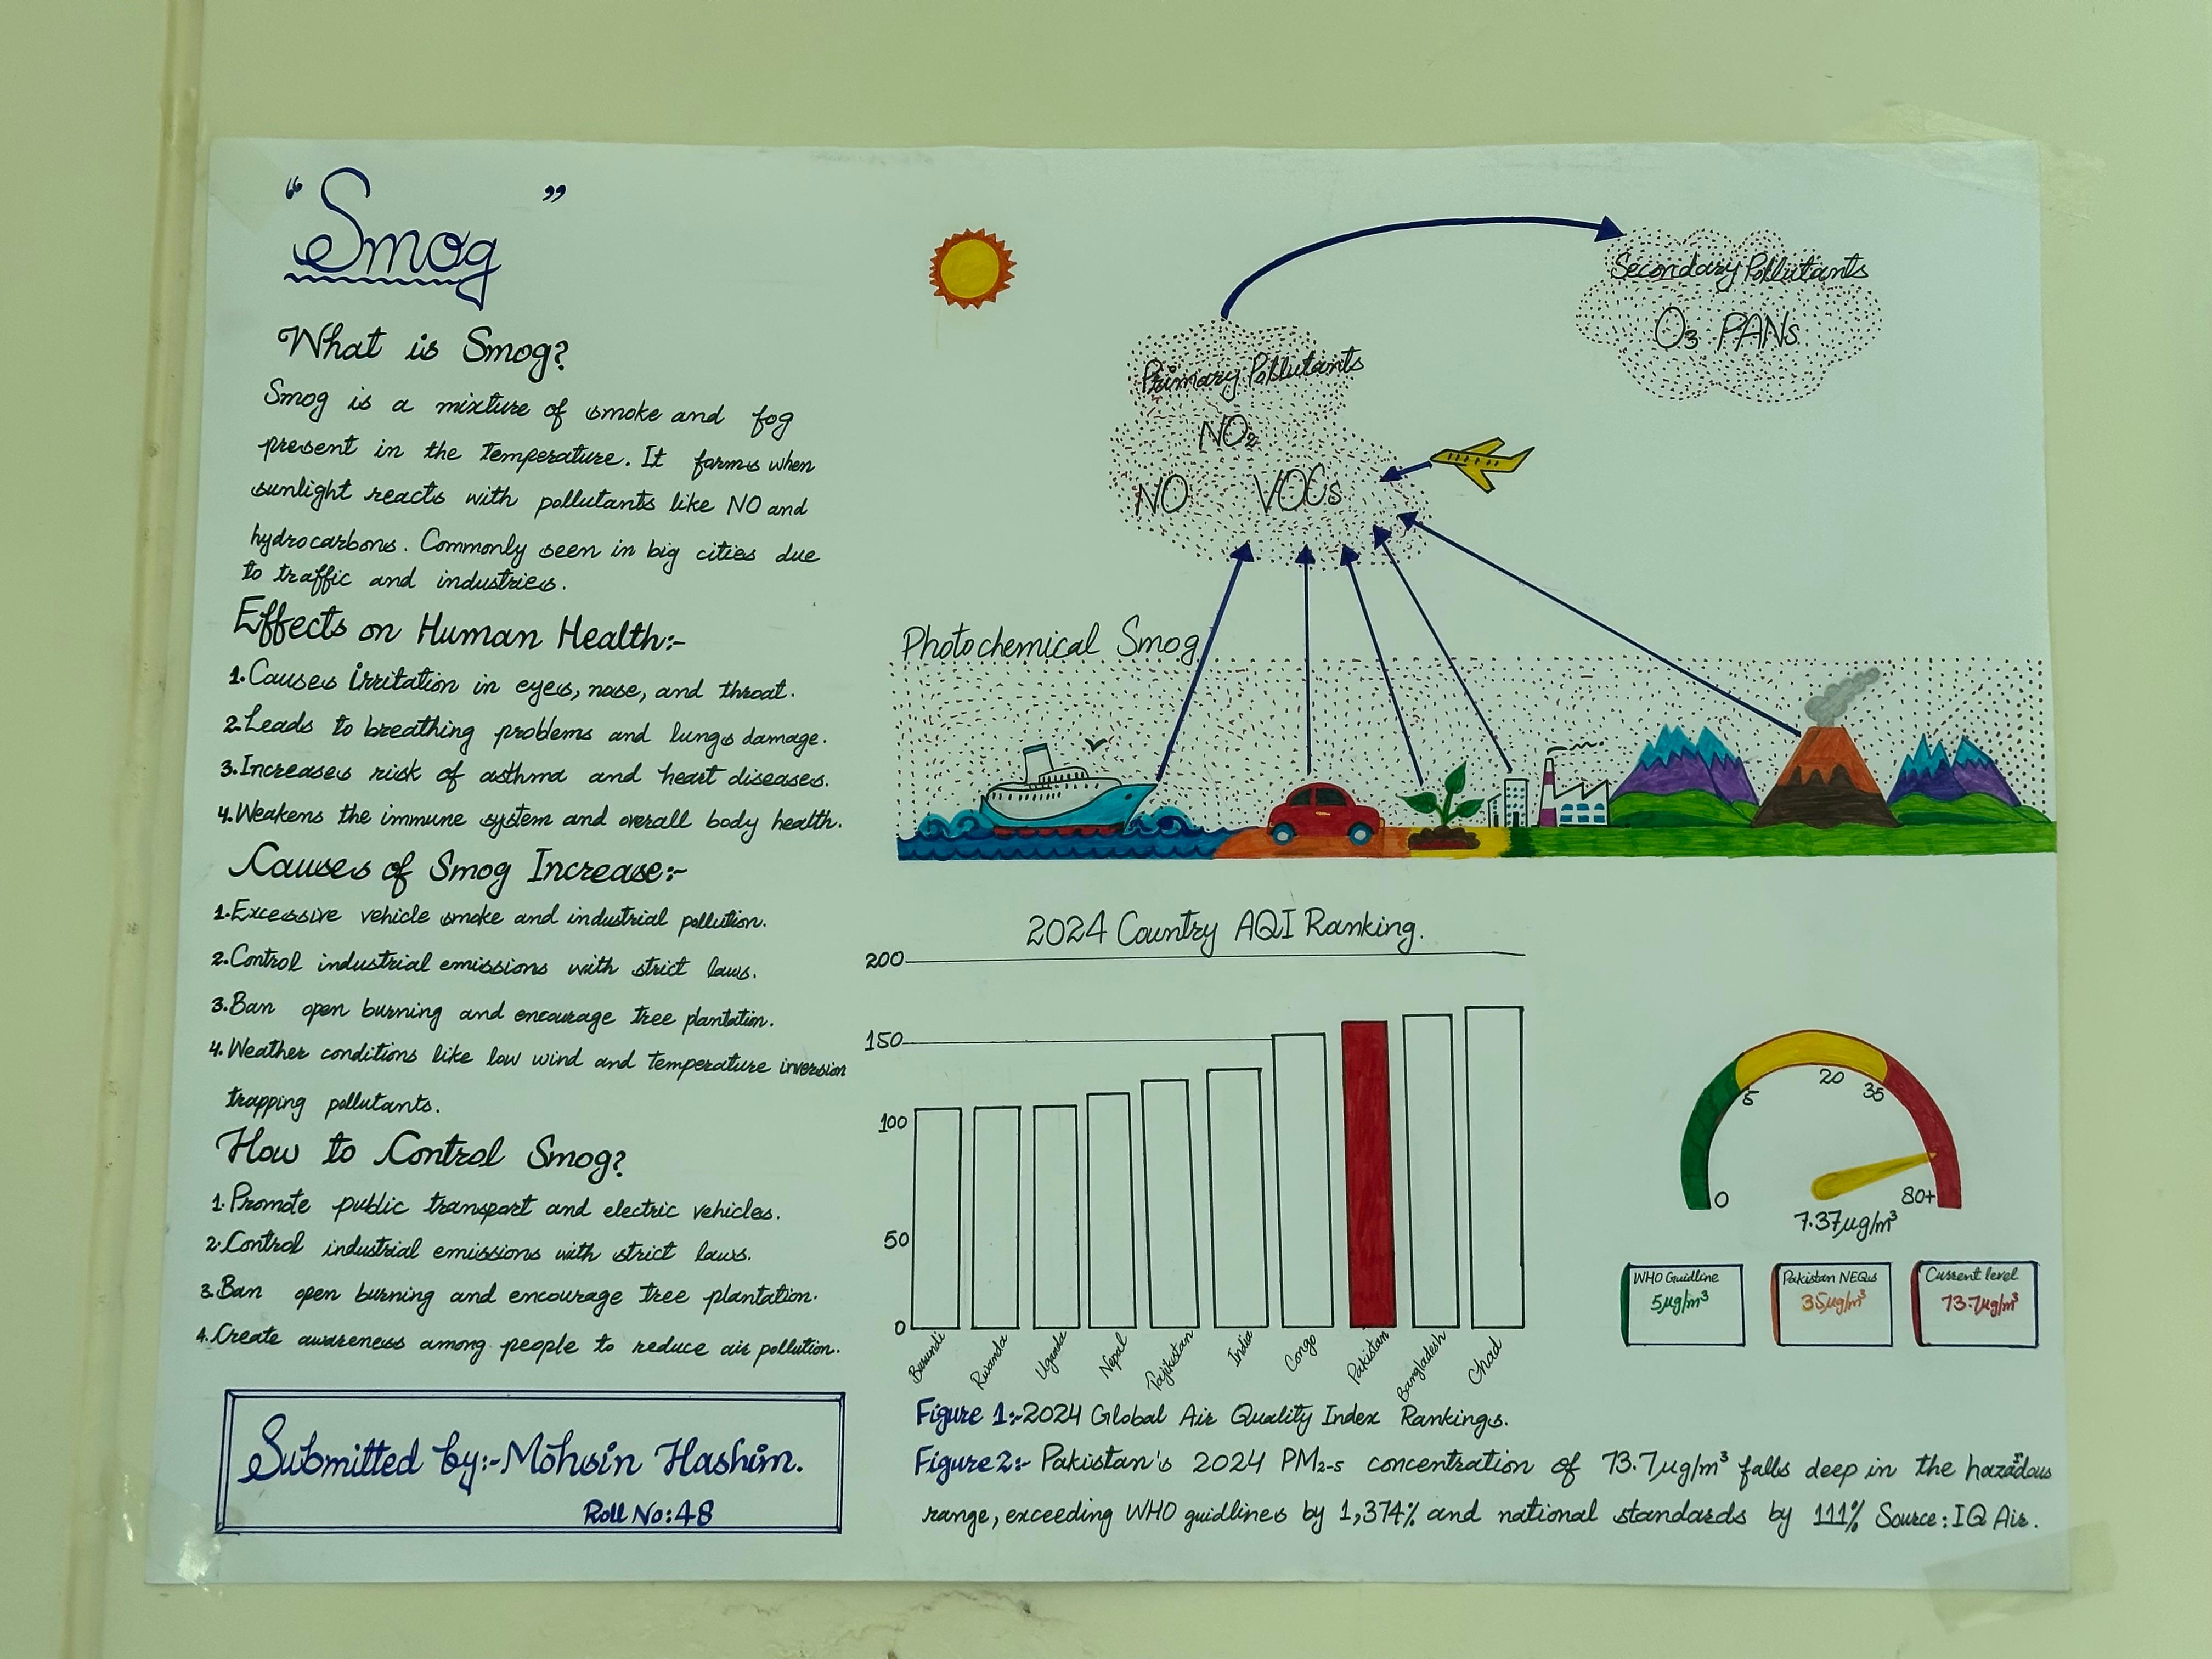 “Smog”
What is Smog?
Smog is a mixture of smoke and fog
present in the temperature. It forms when
sunlight reacts with pollutants like NO and
hydrocarbons. Commonly seen in big cities due
to traffic and industries.
Effects on Human Health:-
1.Causes irritation in eyes, nose, and throat.
2.Leads to breathing problems and lungs damage.
3.Increases risk of asthma and heart diseases.
4.Weakens the immune system and overall body health.
Causes of Smog Increase:-
1.Excessive vehicle smoke and industrial pollution.
2.Control industrial emissions with strict laws.
3.Ban open burning and encourage tree plantation.
4.Weather conditions like low wind and temperature inversion
trapping pollutants.
How to Control Smog?
1.Promote public transport and electric vehicles.
2.Control industrial emissions with strict laws.
3.Ban open burning and encourage tree plantation.
4.Create awareness among people to reduce air pollution.
Submitted by:-Mohsin Hashim.
Roll No:48
Secondary Pollutants
O3 PANs
Primary Pollutants
NO2
NO VOCs
Photochemical Smog
2024 Country AQI Ranking.
200
150
100
50
0
Burundi
Rwanda
Uganda
Nepal
Tajikistan
India
Congo
Pakistan
Bangladesh
Chad
0
5
20
35
80+
7.37µg/m³
WHO Guidline
5µg/m³
Pakistan NEQs
35µg/m³
Current level
73.7µg/m³
Figure 1:-2024 Global Air Quality Index Rankings.
Figure2:- Pakistan's 2024 PM2.5 concentration of 73.7µg/m³ falls deep in the hazardous
range, exceeding WHO guidlines by 1,374% and national standards by 111% Source: IQ Air.